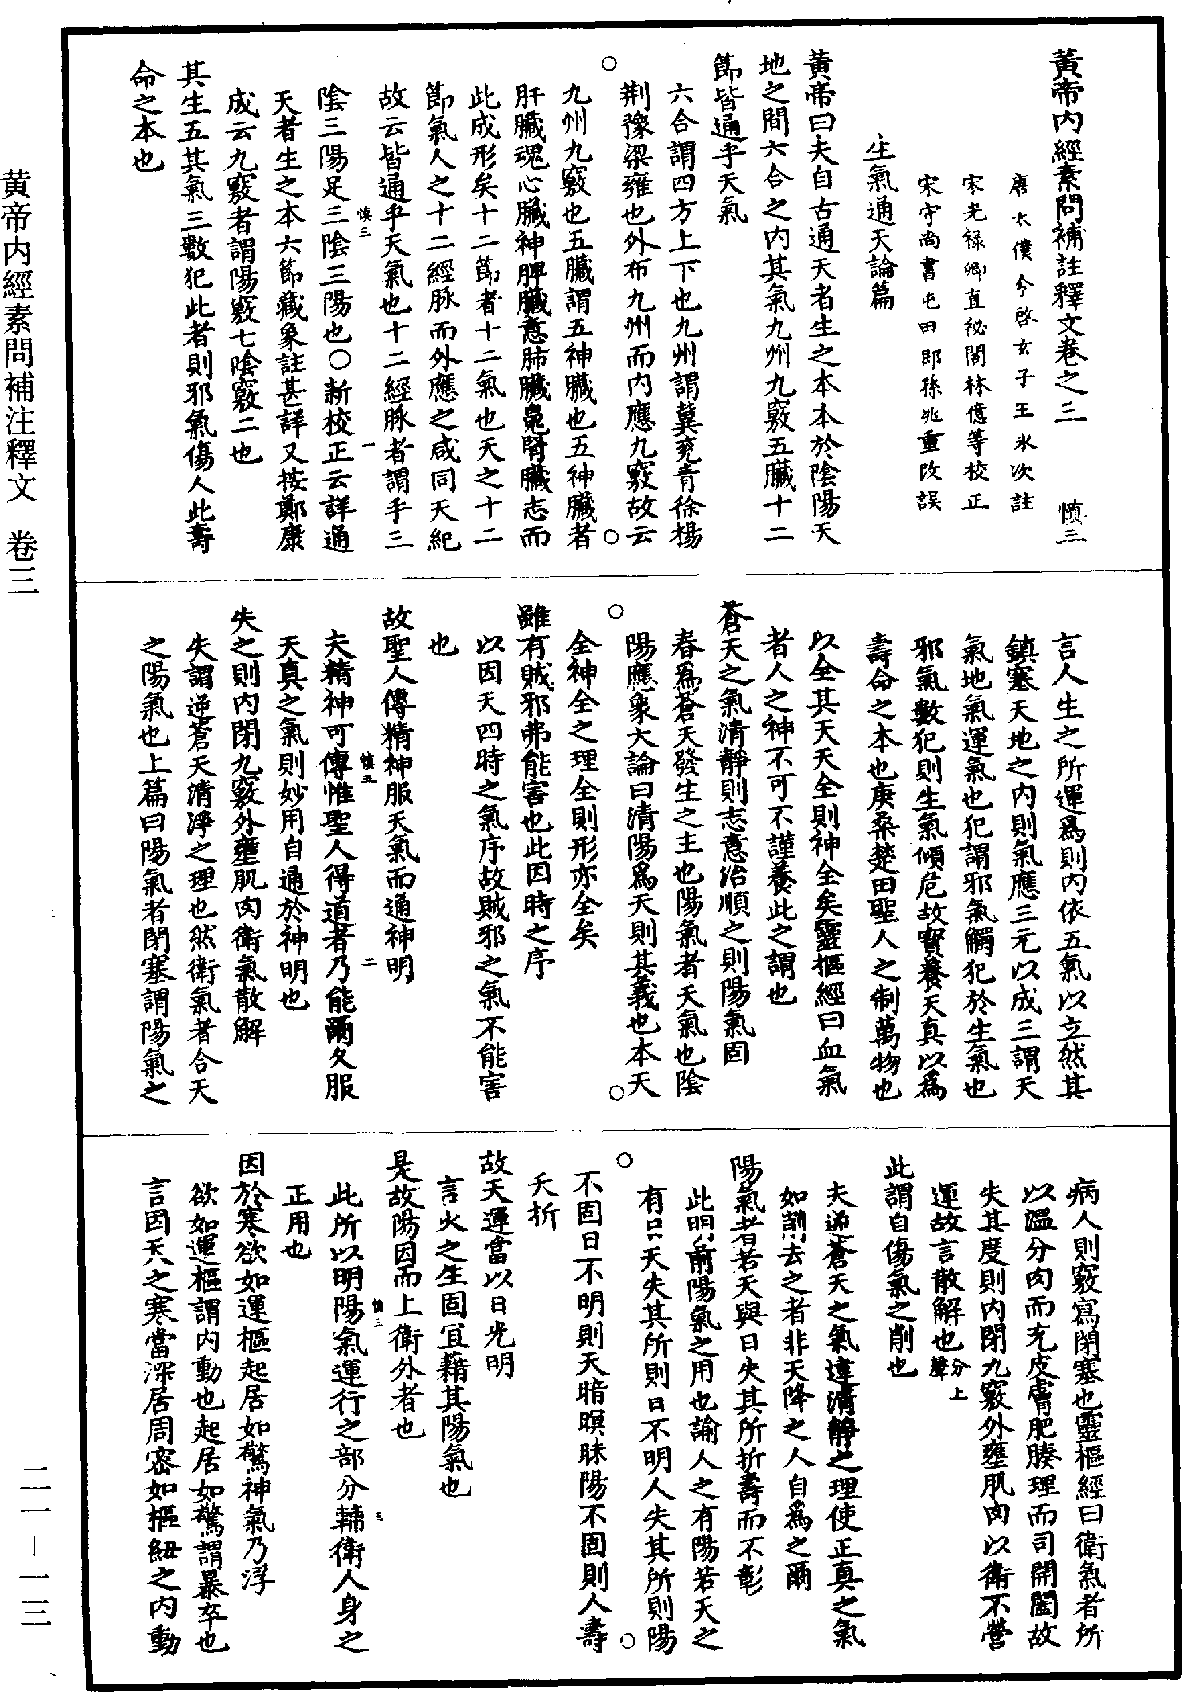 黃帝內經素問補註釋文卷之三　慎三
唐太僕令啓玄子王氷次註
宋光祿卿直祕閣林億等校正
宋守尚書屯田郎孫兆重改誤
生氣通天論篇
黃帝曰夫自古通天者生之本本於陰陽天
地之間六合之內其氣九州九竅五臟十二
節皆通乎天氣
六合謂四方上下也九州謂冀兗青徐楊
荆豫梁雍也外布九州而內應九竅故云
九州九竅也五臟謂五神臟也五神臟者
肝臟魂心臟神脾臟意肺臟魄腎臟志而
此成形矣十二節者十二氣也天之十二
節氣人之十二經脉而外應之咸同天紀
故云皆通乎天氣也十二經脉者謂手三
慎三　一
陰三陽足三陰三陽也○新校正云詳通
天者生之本六節藏象註甚詳又按鄭康
成云九竅者謂陽竅七陰竅二也
其生五其氣三數犯此者則邪氣傷人此壽
命之本也
言人生之所運爲則內依五氣以立然其
鎮塞天地之內則氣應三元以成三謂天
氣地氣運氣也犯謂邪氣觸犯於生氣也
邪氣數犯則生氣傾危故寶養天真以爲
壽命之本也庚桑楚曰聖人之制萬物也
以全其天天全則神全矣靈樞經曰血氣
者人之神不可不謹養此之謂也
蒼天之氣清靜則志意治順之則陽氣固
春爲蒼天發生之主也陽氣者天氣也陰
陽應象大論曰清陽爲天則其義也本天
全神全之理全則形亦全矣
雖有賊邪弗能害也此因時之序
以因天四時之氣序故賊邪之氣不能害
也
故聖人傳精神服天氣而通神明
慎三　二
夫精神可傳惟聖人得道者乃能爾久服
天真之氣則妙用自通於神明也
失之則內閉九竅外壅肌肉衛氣散解
失謂逆蒼天清淨之理也然衛氣者合天
之陽氣也上篇曰陽氣者閉塞謂陽氣之
病人則竅寫閉塞也靈樞經曰衛氣者所
以溫分肉而充皮膚肥腠理而司開闔故
失其度則內閉九竅外壅肌肉以衛不營
運故言散解也分上聲
此謂自傷氣之削也
夫逆蒼天之氣違清靜之理使正真之氣
如削去之者非天降之人自爲之爾
陽氣者若天與日失其所折壽而不彰
此明前陽氣之用也諭人之有陽若天之
有日天失其所則日不明人失其所則陽
不固日不明則天暗暝昧陽不固則人壽
夭折
故天運當以日光明
言人之生固宜藉其陽氣也
是故陽因而上衛外者也
慎三　三
此所以明陽氣運行之部分輔衛人身之
正用也
因於寒欲如運樞起居如驚神氣乃浮
欲如運樞謂內動也起居如驚謂暴卒也
言因天之寒當深居周密如樞紐之內動
黄帝内經素問補注釋文　卷三
二一－一三